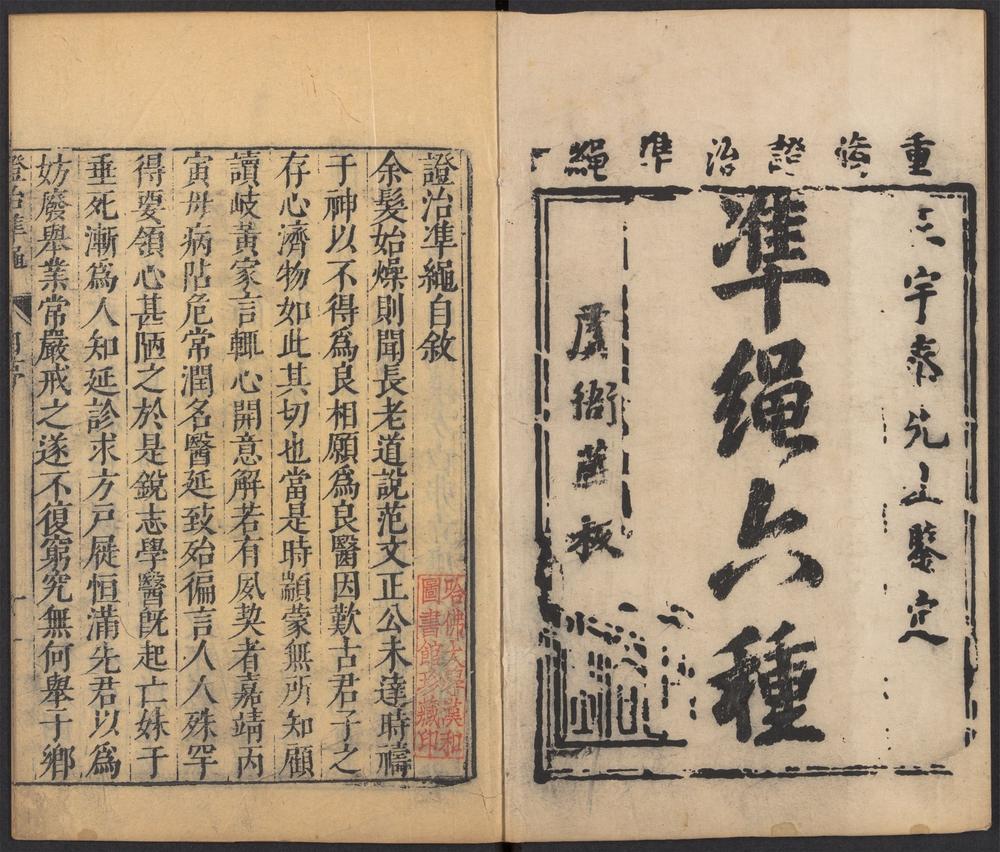 重證治準繩
王宇泰先生鑒定
凖繩六種
虞衙藏板
證治凖繩自敘
余髮始燥則聞長老道說范文正公未達時禱
于神以不得爲良相願爲良醫因歎古君子之
存心濟物如此其切也當是時顓蒙無所知顧
讀岐黃家言輒心開意解若有夙契者嘉靖丙
寅母病阽危常潤名醫延致殆徧言人人殊罕
得要領心甚陋之於是銳志學醫旣起亡妹于
垂死漸爲人知延診求方戶屨恒滿先君以爲
妨廢舉業常嚴戒之遂不復窮究無何舉于鄉
哈佛大學漢和
圖書館珍藏印
證治凖繩